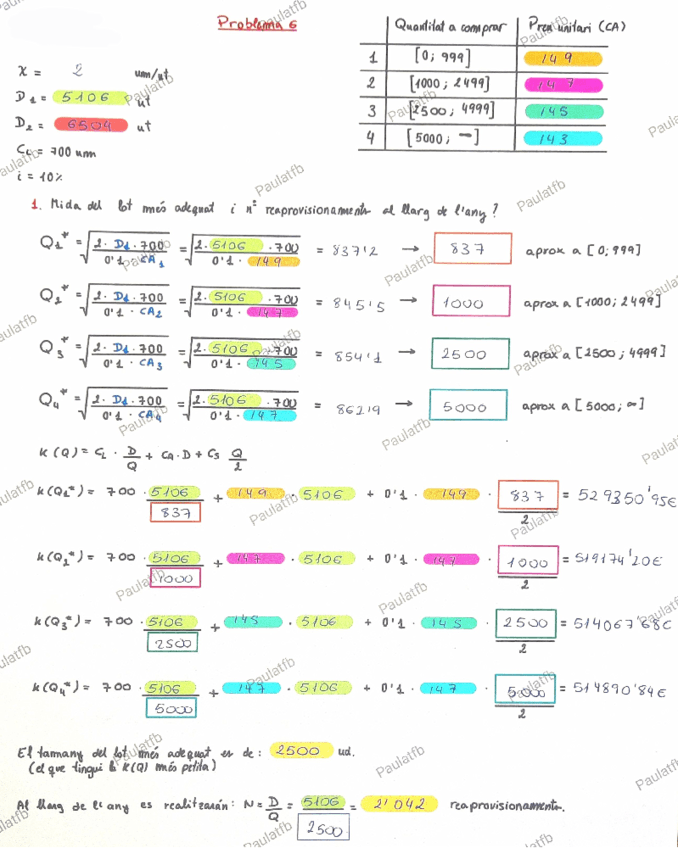 Problema 6
Quantitat a comprar Preu unitari (CA)
1 [0; 999] 149
2 [1000; 2499] 147
3 [2500; 4999] 145
4 [5000; ∞] 143
x = 2 um/ut
D1 = 5106 ut
D2 = 6504 ut
CL = 700 um
i = 10%
1. Mida del lot més adequat i nº reaprovisionaments al llarg de l'any?
Q1* = √(2 · D1 · 700 / 0'1 · CA1) = √(2 · 5106 · 700 / 0'1 · 149) = 837'2 → 837 aprox a [0; 999]
Q2* = √(2 · D1 · 700 / 0'1 · CA2) = √(2 · 5106 · 700 / 0'1 · 147) = 845'5 → 1000 aprox a [1000; 2499]
Q3* = √(2 · D1 · 700 / 0'1 · CA3) = √(2 · 5106 · 700 / 0'1 · 145) = 854'1 → 2500 aprox a [2500; 4999]
Q4* = √(2 · D1 · 700 / 0'1 · CA4) = √(2 · 5106 · 700 / 0'1 · 147) = 862'9 → 5000 aprox a [5000; ∞]
K(Q) = CL · D/Q + CA · D + CS Q/2
K(Q1*) = 700 · 5106/837 + 149 · 5106 + 0'1 · 149 · 837/2 = 529350'95€
K(Q2*) = 700 · 5106/1000 + 147 · 5106 + 0'1 · 147 · 1000/2 = 519174'20€
K(Q3*) = 700 · 5106/2500 + 145 · 5106 + 0'1 · 145 · 2500/2 = 514067'68€
K(Q4*) = 700 · 5106/5000 + 147 · 5106 + 0'1 · 147 · 5000/2 = 514890'84€
El tamany del lot més adequat es de: 2500 ud.
(el que tingui la K(Q) més petita)
Al llarg de l'any es realitzaràn: N = D/Q = 5106/2500 = 2'042 reaprovisionaments.
Paulatfb